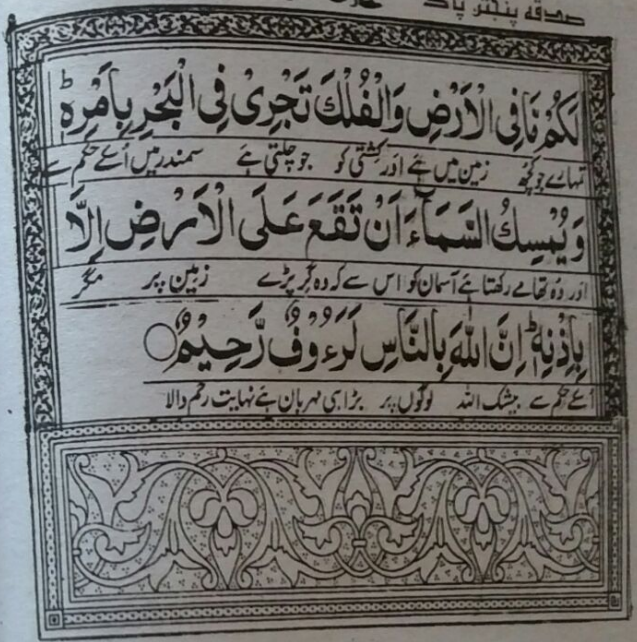 صدقہ پنجتن پاک
لَكُمْ مَّا فِى الْاَرْضِ وَالْفُلْكَ تَجْرِىْ فِى الْبَحْرِ بِاَمْرِهٖ ؕ
تمہارے جو کچھ زمین میں ہے اور کشتی کو جو چلتی ہے سمندر میں اُسکے حکم سے
وَيُمْسِكُ السَّمَآءَ اَنْ تَقَعَ عَلَى الْاَرْضِ اِلَّا
اور وہ تھامے رکھتا ہے آسمان کو اس سے کہ وہ گر پڑے زمین پر مگر
بِاِذْنِهٖ ؕ اِنَّ اللّٰهَ بِالنَّاسِ لَرَءُوْفٌ رَّحِيْمٌ ۝
اُسکے حکم سے بیشک اللہ لوگوں پر بڑا ہی مہربان ہے نہایت رحم والا